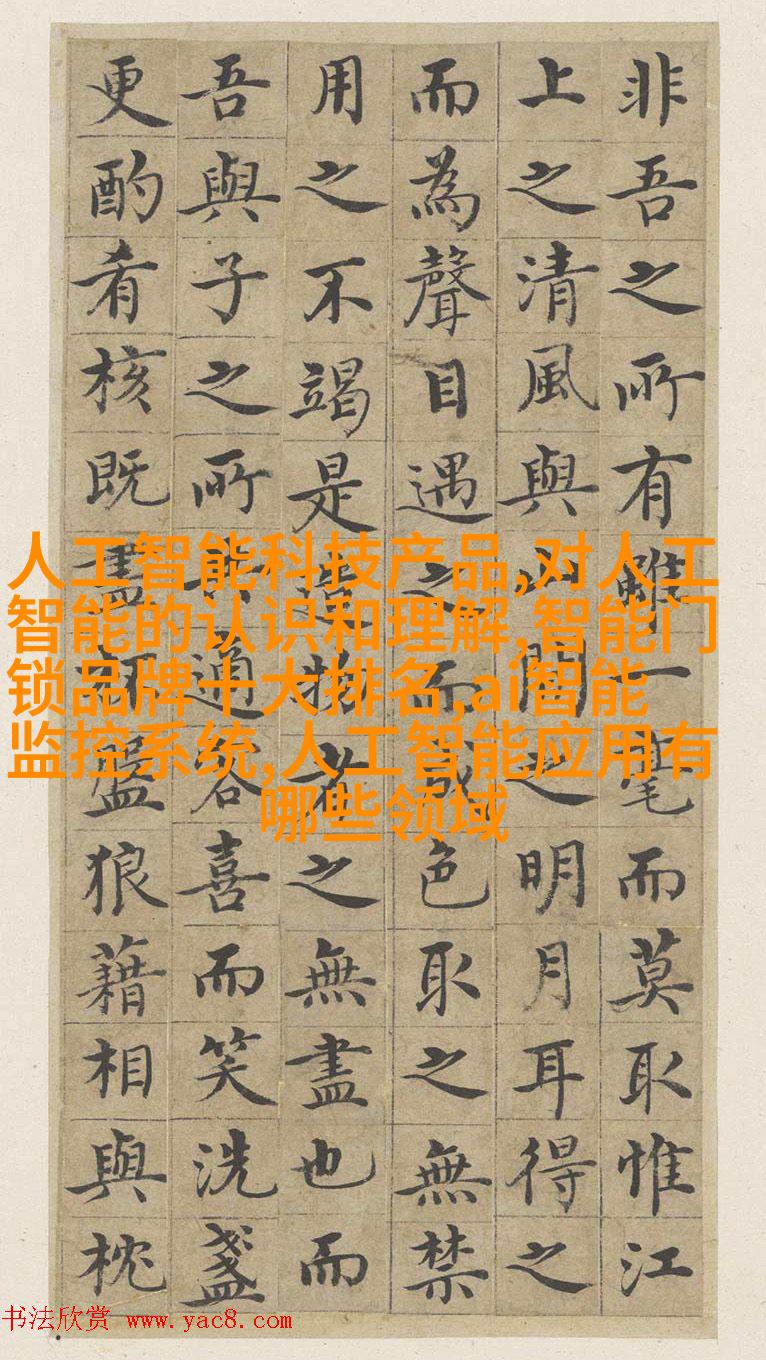 非吾之所有雖一毫而莫取惟江
上之清風與山間之明月耳得之
而為聲目遇之而成色取之無禁
用之不竭是造物者之無盡也而
吾與子之所共適客喜而笑洗盞
更酌肴核既盡杯盤狼藉相與枕
人工智能科技产品,对人工
智能的认识和理解,智能门
锁品牌十大排名,ai智能
监控系统,人工智能应用有
哪些领域
书法欣赏 www.yac8.com